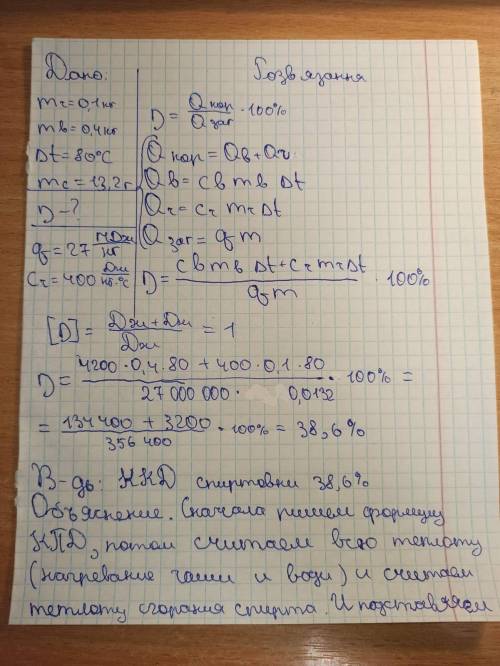 Дано:
Розвязання
mч=0,1кг
mв=0,4кг
Dt=80°C
mc=13,2г
D-?
q=27 МДж/кг
Cч=400 Дж/кг·°C
D= Qкор/Qзаг ·100%
Qкор=Qв+Qч
Qв=CвmвDt
Qч=CчmчDt
Qзаг=qm
D= CвmвDt+CчmчDt/qm · 100%
[D]= Дж+Дж/Дж =1
D= 4200·0,4·80 + 400·0,1·80/27 000 000· 0,0132 · 100% =
= 134400 + 3200/356 400 · 100% = 38,6%
В-дь: ККД спиртовки 38,6%
Объяснение. Сначала пишем формулу
КПД, потом считаем всю теплоту
(нагревание чаши и воды) и считаем
теплоту сгорания спирта. И подставляем